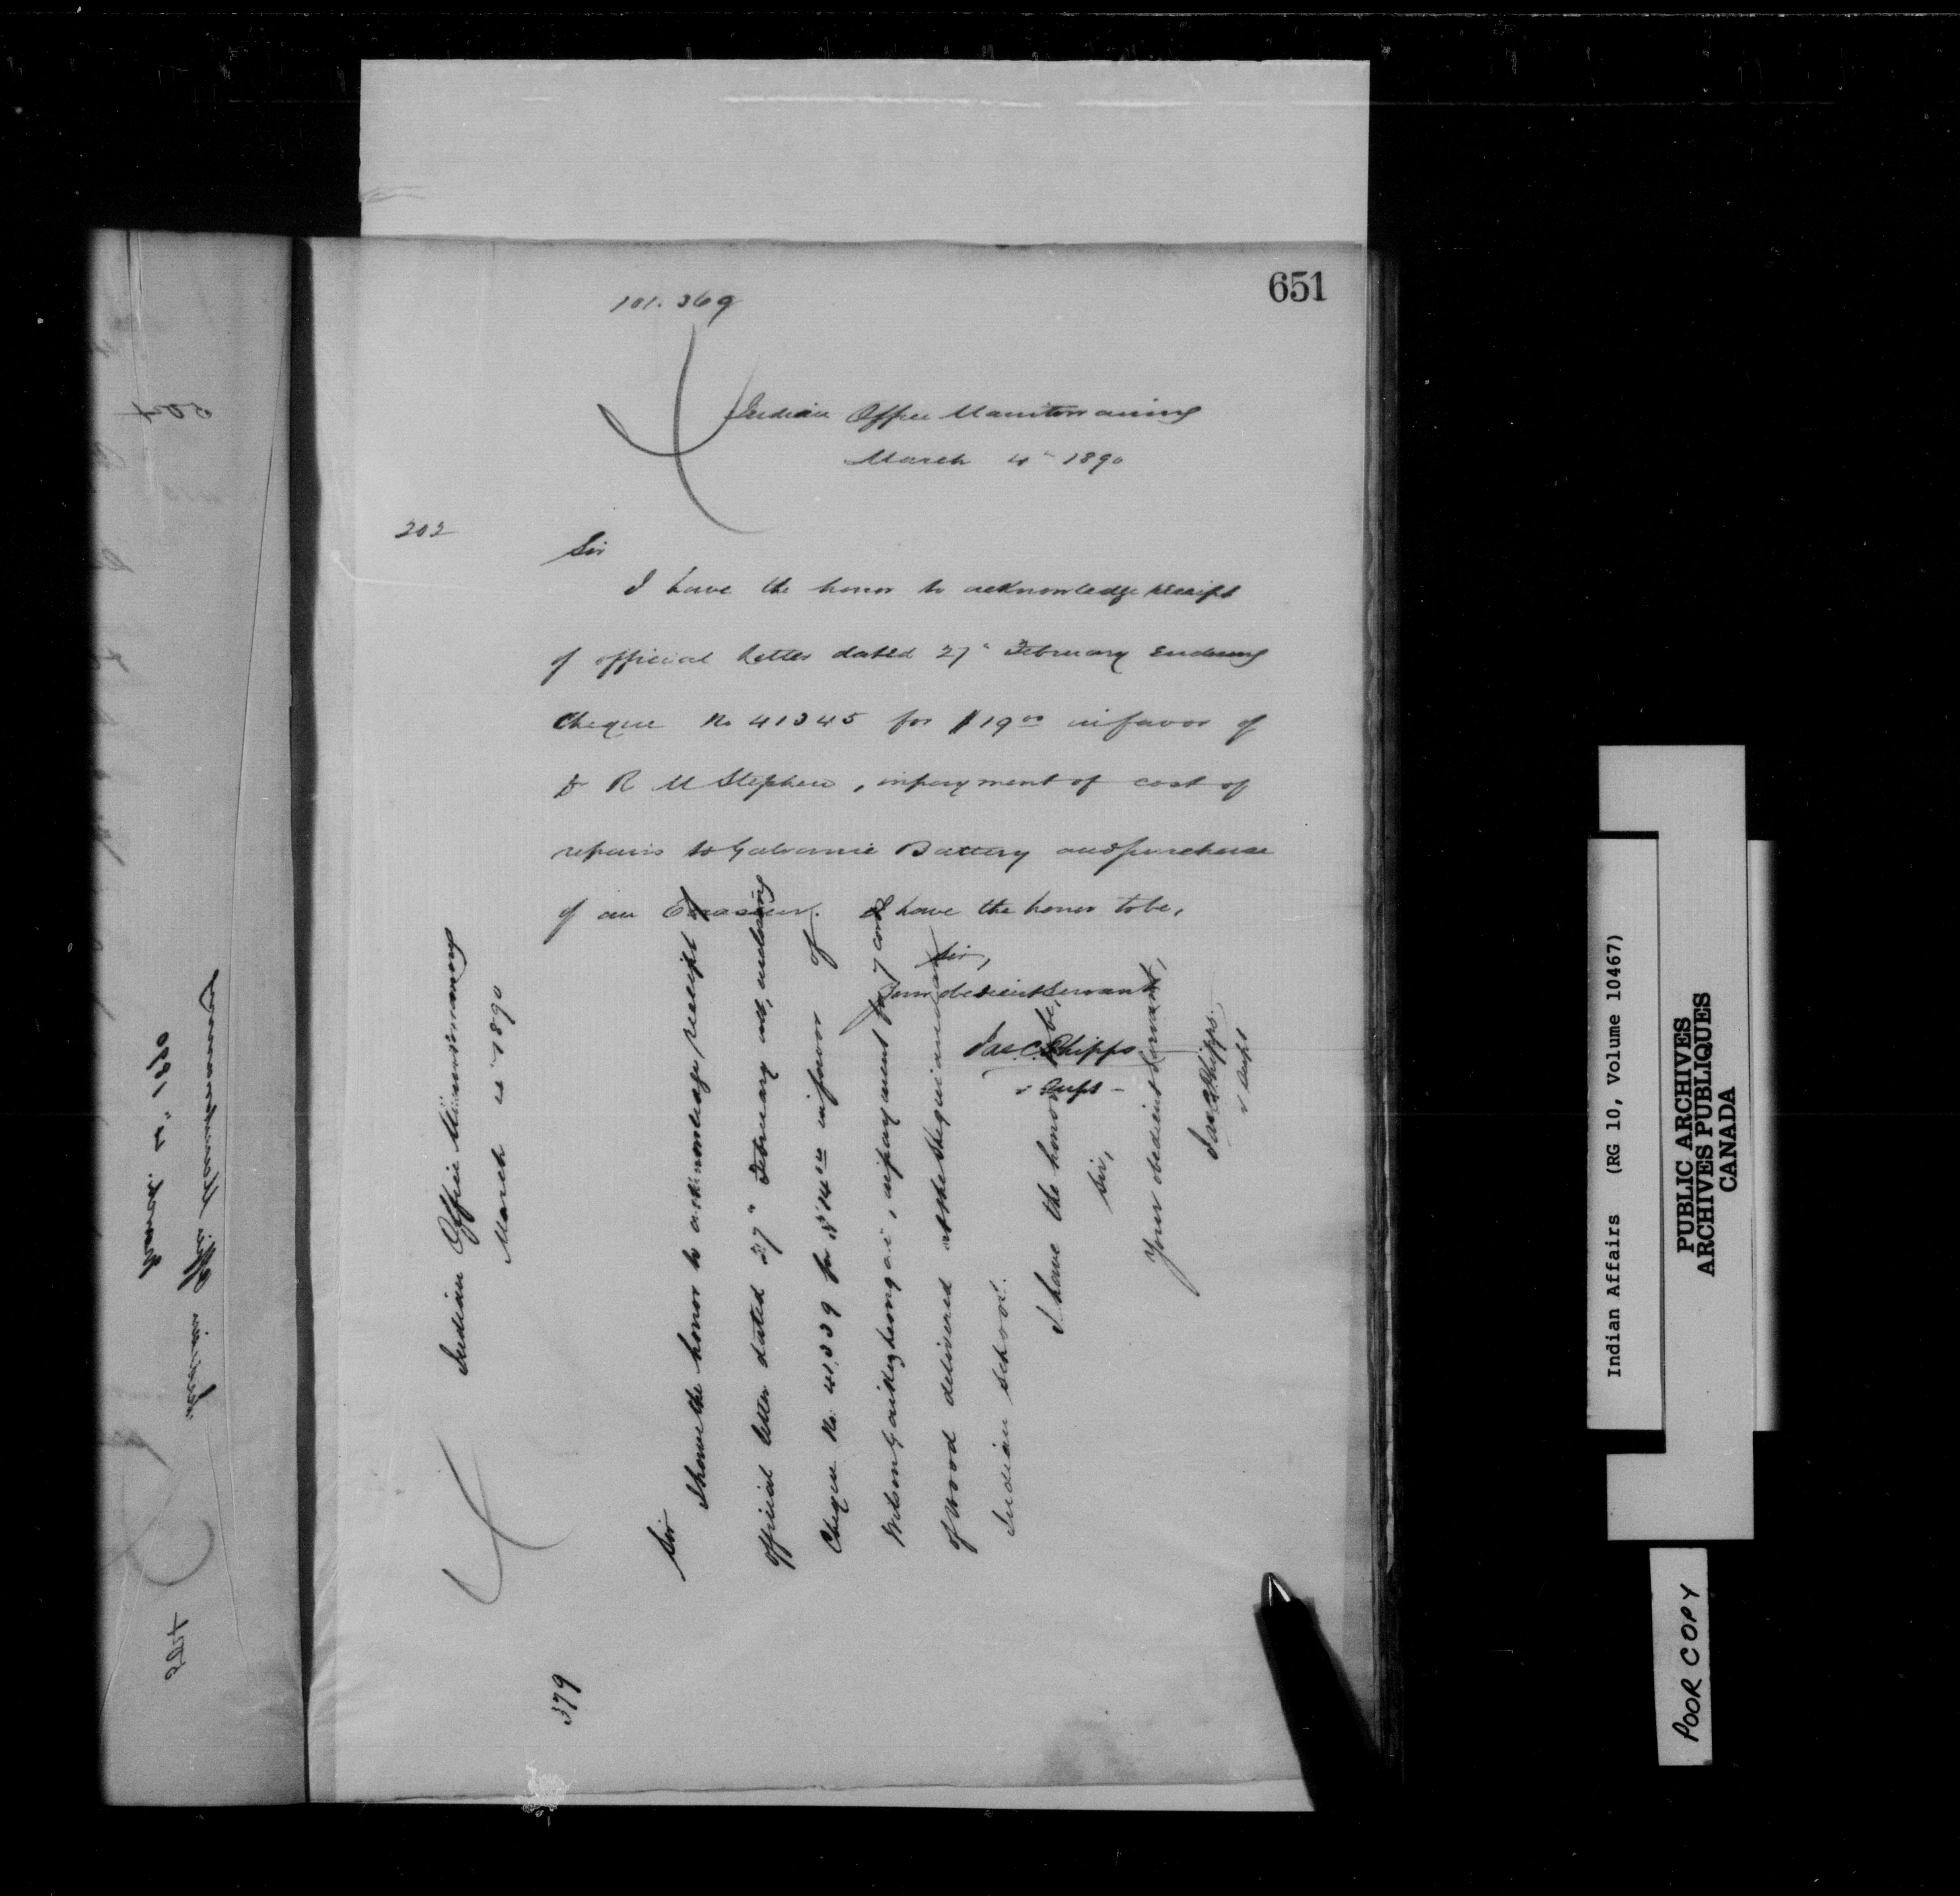 651
101.369
Indian Office Manitowaning
March 4" 1890
202
Sir
I have the honor to acknowledge receipt
of official letter dated 27" February Enclosing
Cheque No 41345 for $19.00 in favor of
Dr R M Stephen, in payment of cost of
repairs to Galvanic Battery and purchase
of an
I have the honor to be,
Sir,
Your obedient Servant
Jas. C. Phipps
V Supt
Indian Office Manitowaning
March 4" 1890
Sir
I have the honor to acknowledge receipt of
official letter dated 27" February enclosing
Cheque No. 41339 for $14.00 in favor of
Wilson in payment for 7 cords
of wood delivered at the Sheguiandah
Indian School.
I have the honor to be,
Sir,
Your obedient Servant,
Jas C Phipps.
V Supt
379
204
Indian Office Manitowaning
March 4" 1890
Indian Affairs (RG 10, Volume 10467)
PUBLIC ARCHIVES
ARCHIVES PUBLIQUES
CANADA
POOR COPY